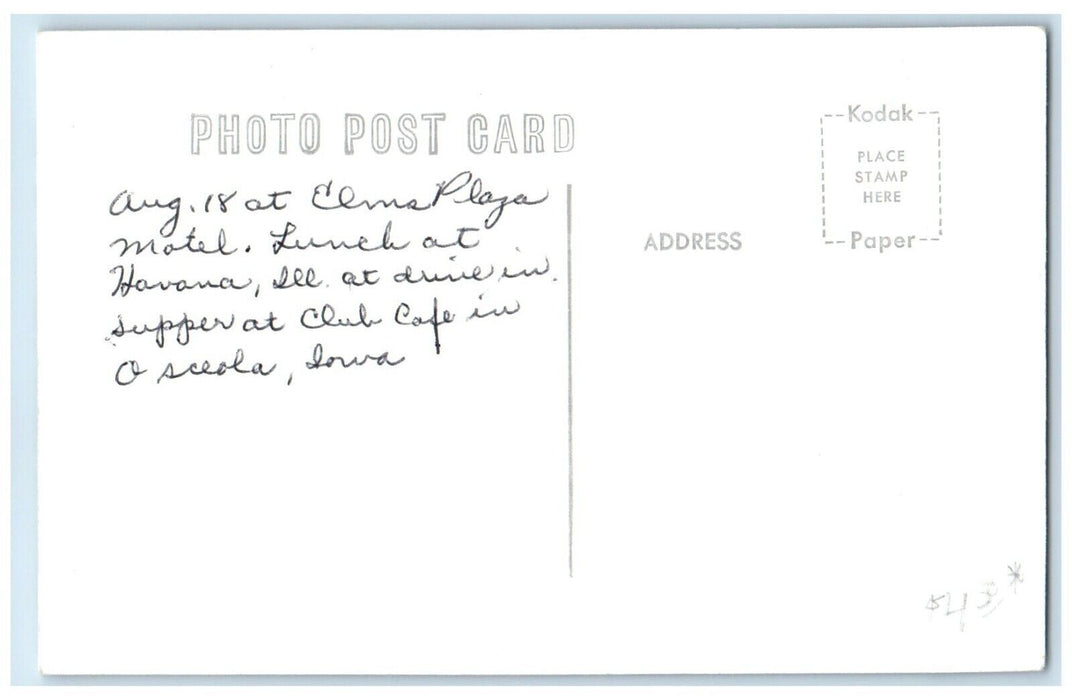 PHOTO POST CARD
Aug. 18 at Elms Plaza
Motel. Lunch at
Havana, Ill. at drive in.
Supper at Club Cafe in
Osceola, Iowa
Kodak
PLACE
STAMP
HERE
Paper
ADDRESS